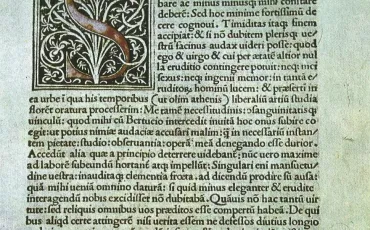 bare ac minus minusq; mihi constare
deberē: Sed hoc minime fortissimū de
cere cognoui. Timiditas itaq; finem
accipiat: & si nō dubitem plerisq; ue
strū facinus audax uideri posse: quod
ego & uirgo & cui per ætatē altior nul
la eruditio contingere potuit: necq; mei
sexus: necq; ingenii memor: in tantā e/
ruditorꝝ hominū lucem: & præsertī in
ea urbe ī qua his temporibus (ut olim athenis) liberaliū artiū studia
florēt oratura processerim: Me tamē necessitudinis: sanguinitatisq;
uinculū: quod mihi cū Bertucio intercedit inuitā hoc onus subire co
egit: ut potius nimiæ audaciæ accusari malim: q̄ in necessariū instan/
tem pietate: studio: obseruantia: operā meā denegando esse durior.
Accedūt alia quæ a principio deterrere uidebanť: nūc uero maxime
ad laborē subeundū hortanť atq; impellūt: Singulari eni mansuetu/
dine uestra: inauditaq; clementia freta, ad dicendū prodire sū ausa:
quā mihi ueniā omnino daturā: si quid minus eleganter & erudite
interagendū nobis excidisset nō dubitabā. Quāuis nō hac tantū uir
tute: sed reliquis omnibus uos præditos esse compertū habeā. De qui
bus aliqd certe attingerē nisi uerita essem ne defessos diutius longio